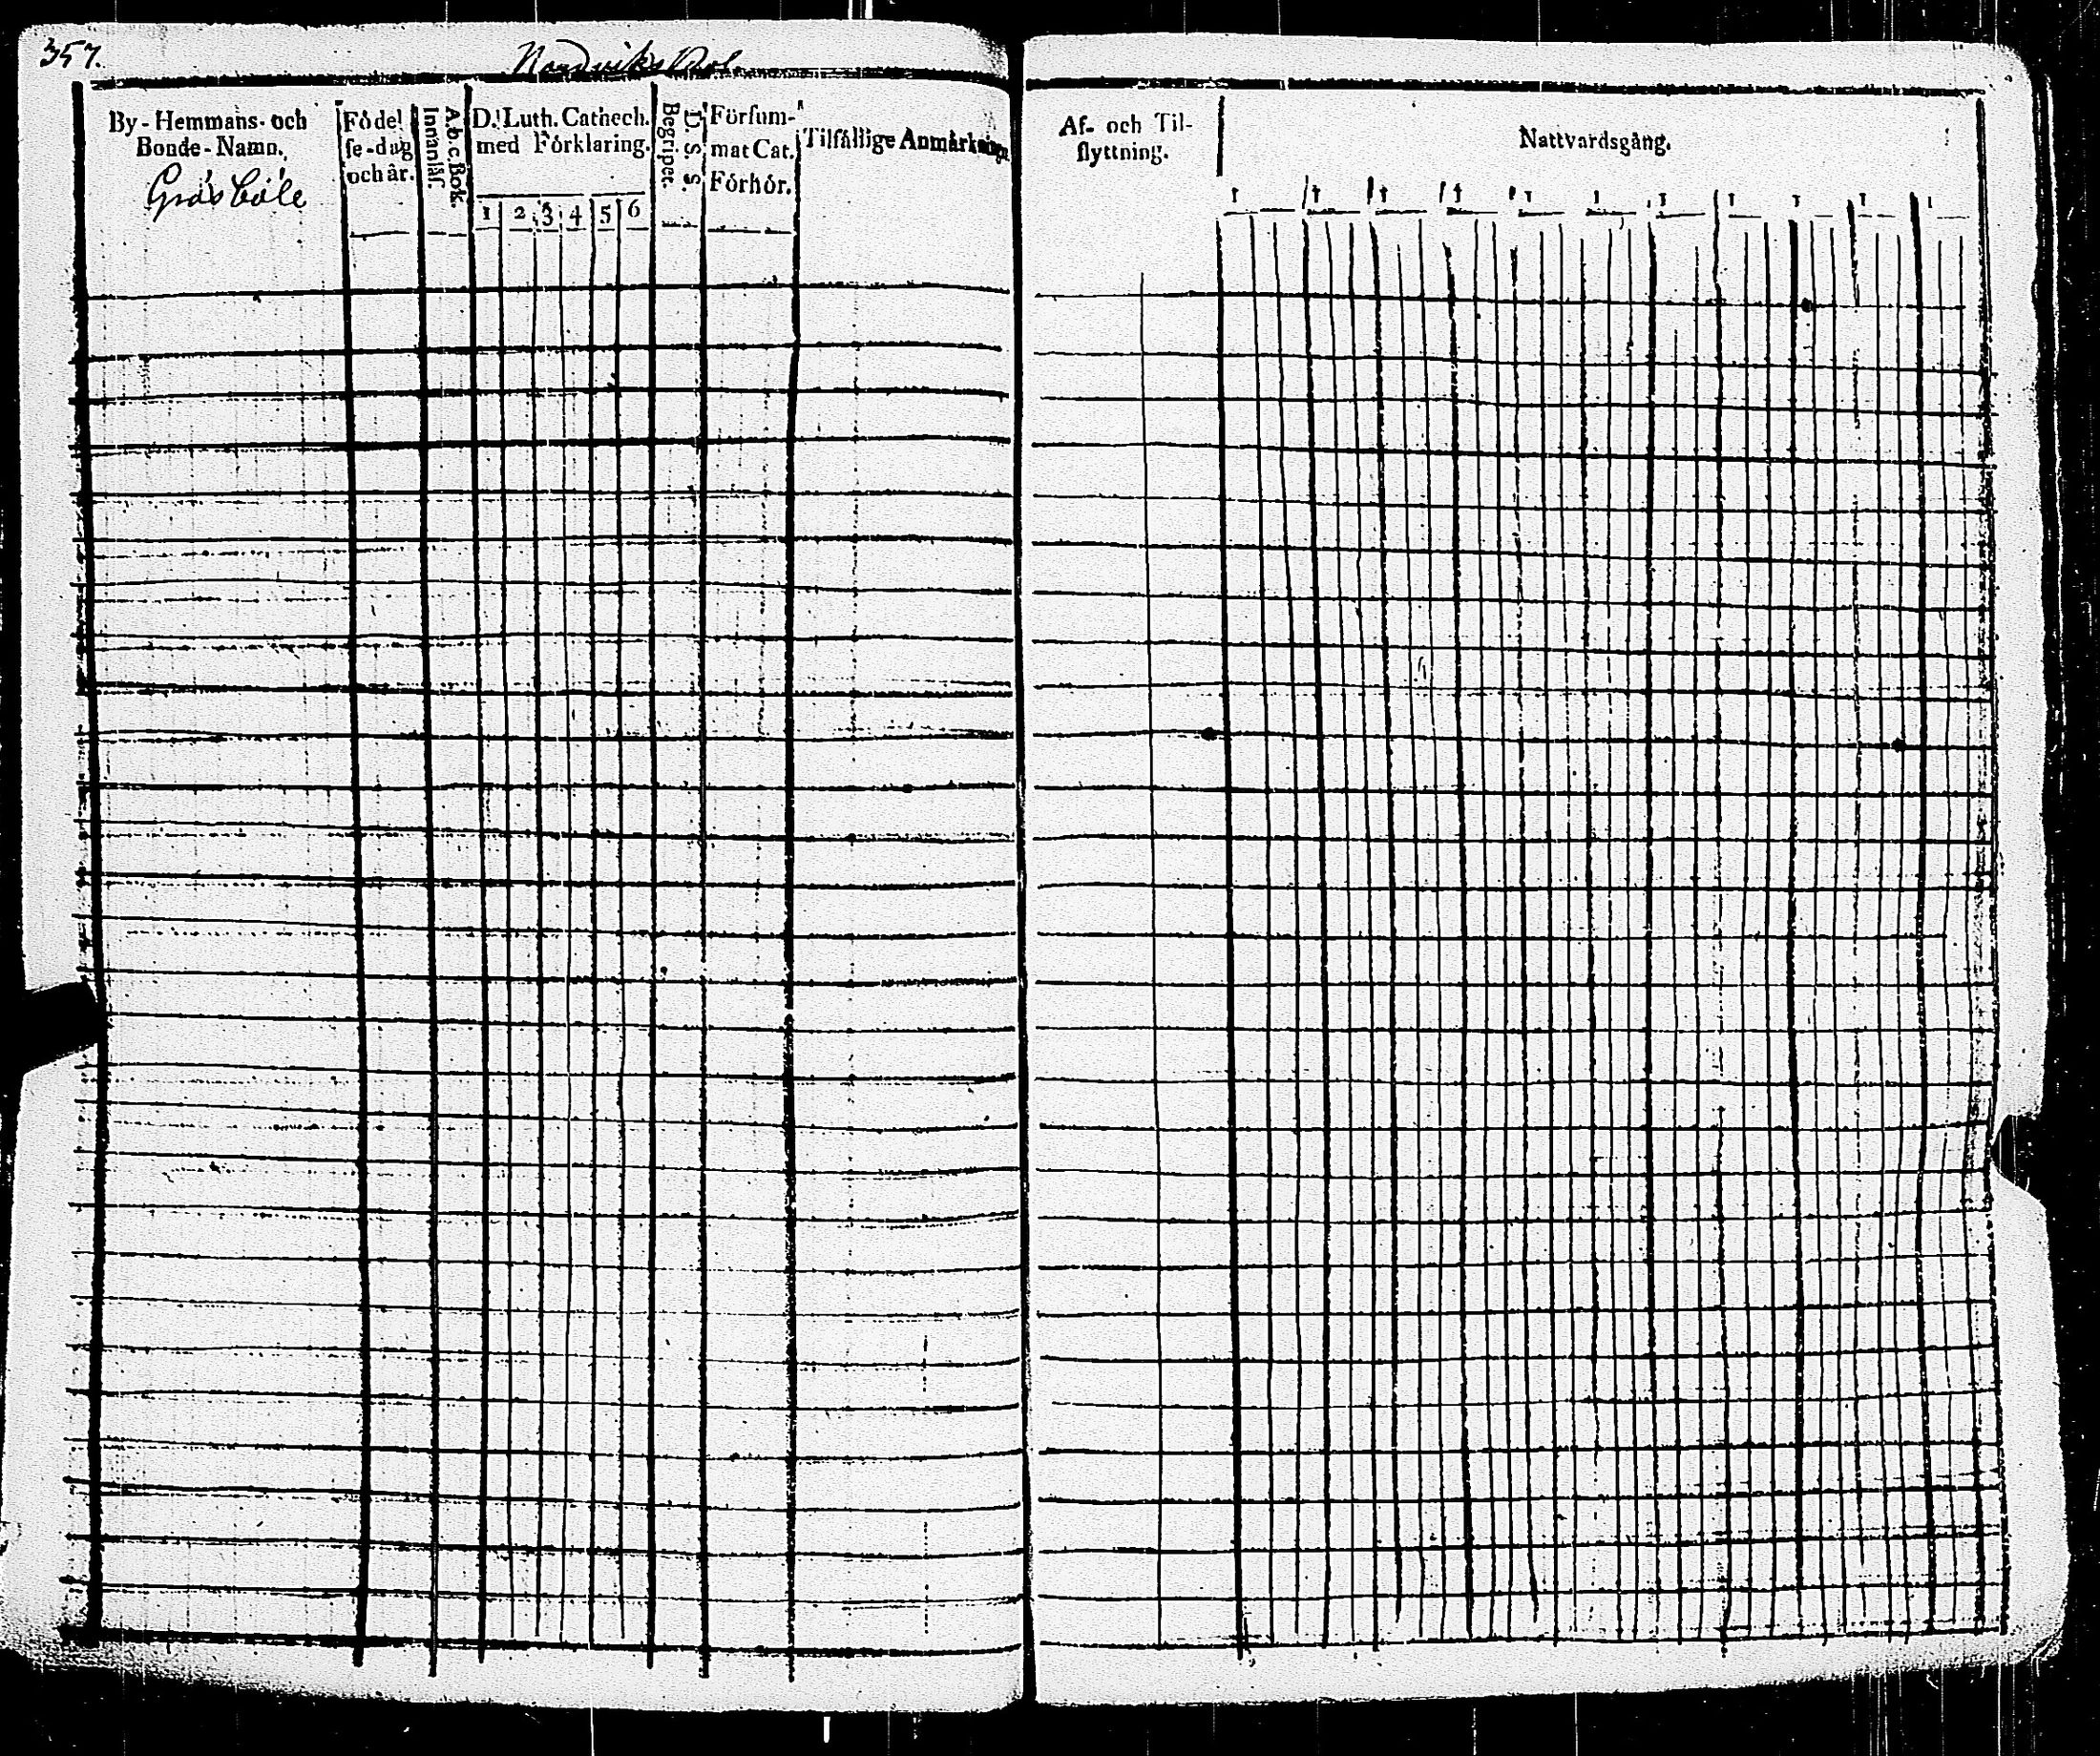 357.
Nordviks Rot.
By-Hemmans- och
Bonde-Namn.
Gräsböle
Födel
se-dag
och år.
A. b. c. Bok.
Innanläs.
D. Luth. Cathech.
med Förklaring.
1 2 3 4 5 6
D. S. S.
Begripet.
Försum-
mat Cat.
Förhör.
Tilfällige Anmärkningar
Af- och Til-
flyttning.
Nattvardsgång.
1 1 1 1 1 1 1 1 1 1 1